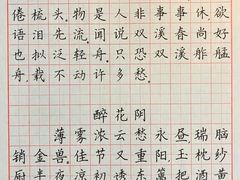 倦梳头。物是人非事事休欲
语泪先流。闻说双溪春尚好
也拟泛轻舟。只恐双溪舴艋
舟载不动许多愁。
醉花阴
薄雾浓云愁永昼,瑞脑
销金兽。佳节又重阳,玉枕纱
厨半夜凉初透东篱把